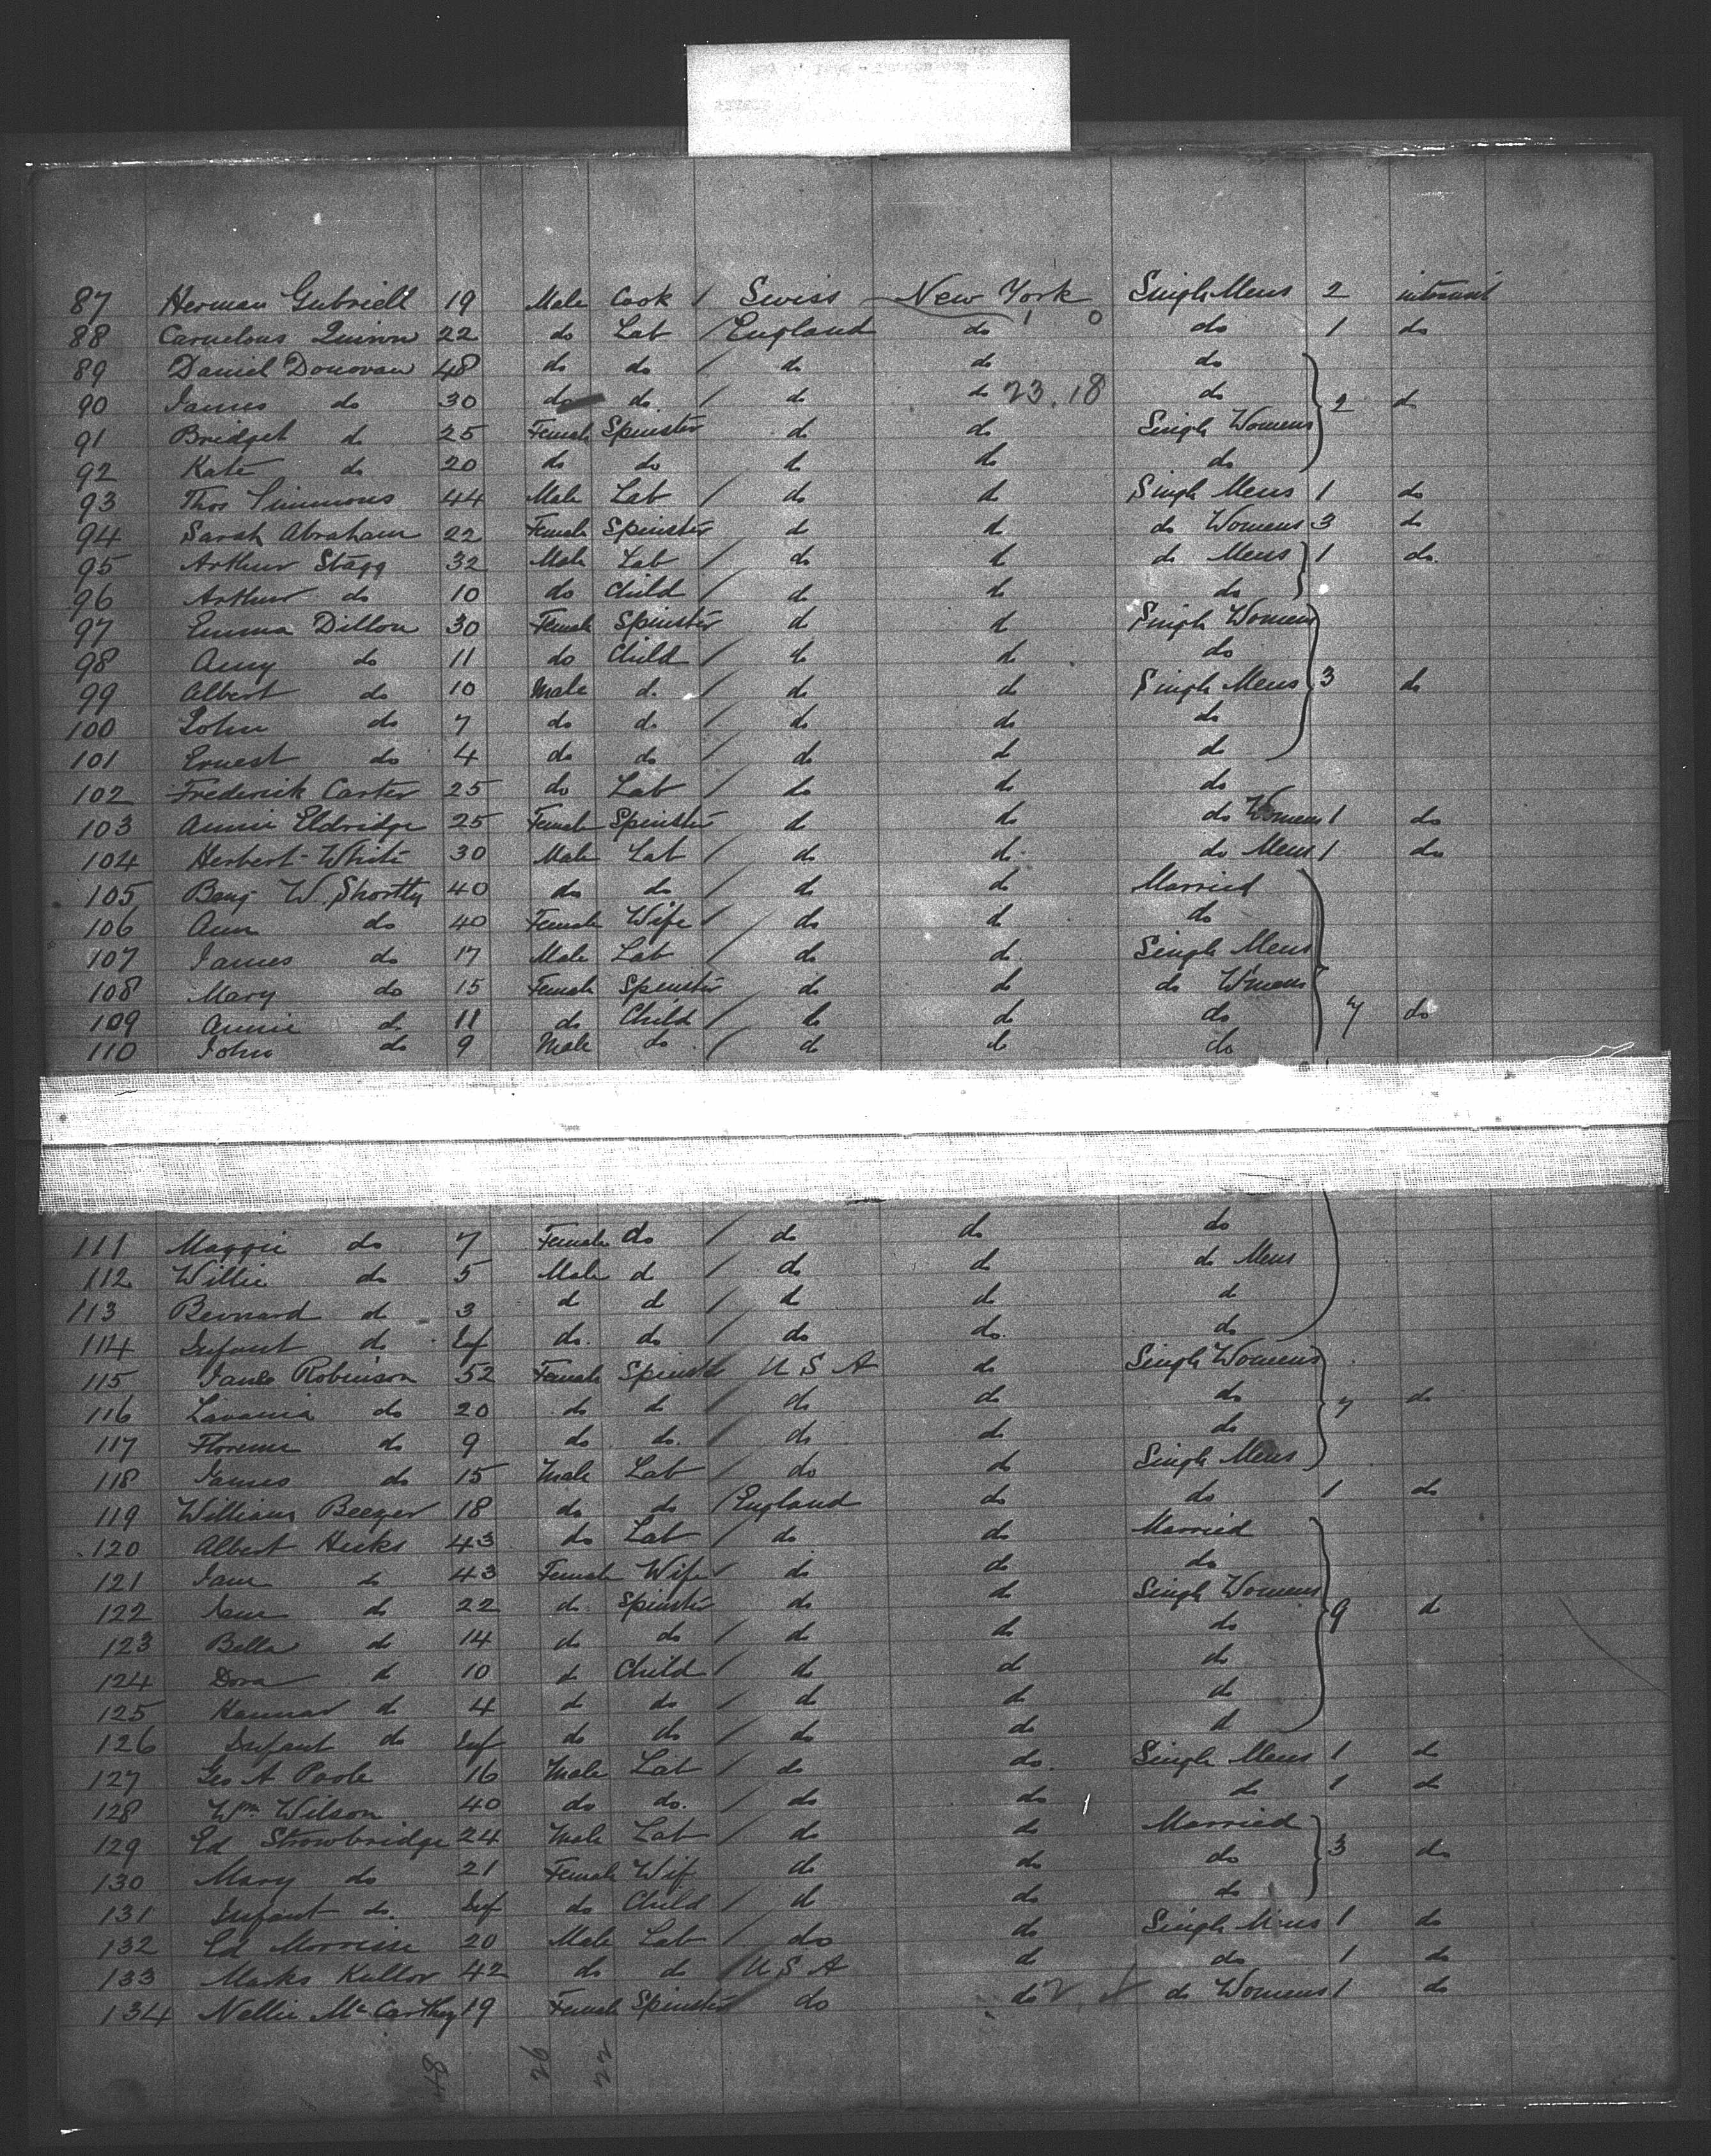 87 Herman Gubriell 19 Male Cook / Swiss New York Single Mens 2 intransit
88 Carnelous Quinn 22 do Lab / England do 1 0 do 1 do
89 Daniel Donovan 48 do do / do do do
90 James do 30 do do / do do 23.18 do 2 do
91 Bridget do 25 Female Spinster do do Single Womens
92 Kate do 20 do do do do do
93 Thos Simmons 44 Male Lab / do do Single Mens 1 do
94 Sarah Abraham 22 Female Spinster do do do Womens 3 do
95 Arthur Stagg 32 Male Lab / do do do Mens 1 do
96 Arthur do 10 do Child / do do do
97 Emma Dillon 30 Female Spinster do do Single Womens
98 Amy do 11 do Child / do do do
99 Albert do 10 Male do / do do Single Mens 3 do
100 John do 7 do do / do do do
101 Ernest do 4 do do / do do do
102 Frederick Carter 25 do Lab / do do do
103 Annie Eldridge 25 Female Spinster do do do Womens 1 do
104 Herbert White 30 Male Lab / do do do Mens 1 do
105 Benj W. Shortty 40 do do / do do Married
106 Ann do 40 Female Wife / do do do
107 James do 17 Male Lab / do do Single Mens
108 Mary do 15 Female Spinster do do do Womens
109 Annie do 11 do Child / do do do 7 do
110 John do 9 Male do / do do do
111 Maggie do 7 Female do / do do do
112 Willie do 5 Male do / do do do Mens
113 Bernard do 3 do do / do do do
114 Infant do Inf do do / do do do
115 Jane Robinson 52 Female Spinster U S A do Single Womens
116 Lavania do 20 do do / do do do 7 do
117 Florence do 9 do do / do do do
118 James do 15 Male Lab / do do Single Mens
119 William Beezer 18 do do / England do do 1 do
120 Albert Hicks 43 do Lab / do do Married
121 Jane do 43 Female Wife do do do
122 Jane do 22 do Spinster do do Single Womens 9 do
123 Bella do 14 do do / do do do
124 Dora do 10 do Child / do do do
125 Hannar do 4 do do / do do do
126 Infant do Inf do do / do do do
127 Geo A Poole 16 Male Lab / do do Single Mens 1 do
128 Wm Wilson 40 do do / do do do 1 do
129 Ed Strowbridge 24 Male Lab / do do Married 3 do
130 Mary do 21 Female Wif do do do
131 Infant do Inf do Child / do do do
132 Ed Morrisse 20 Male Lab / do do Single Mens 1 do
133 Marks Kullor 42 do do / U S A do do 1 do
134 Nellie McCarthy 19 Female Spinster do do 2 do Womens 1 do
48 26 22